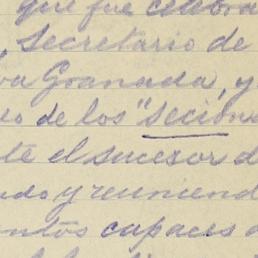 que fue celebra
, Secretario de
va Granada, y
o de los "Secion
te el sucesor d
ndo y reuniend
ntos capaces d